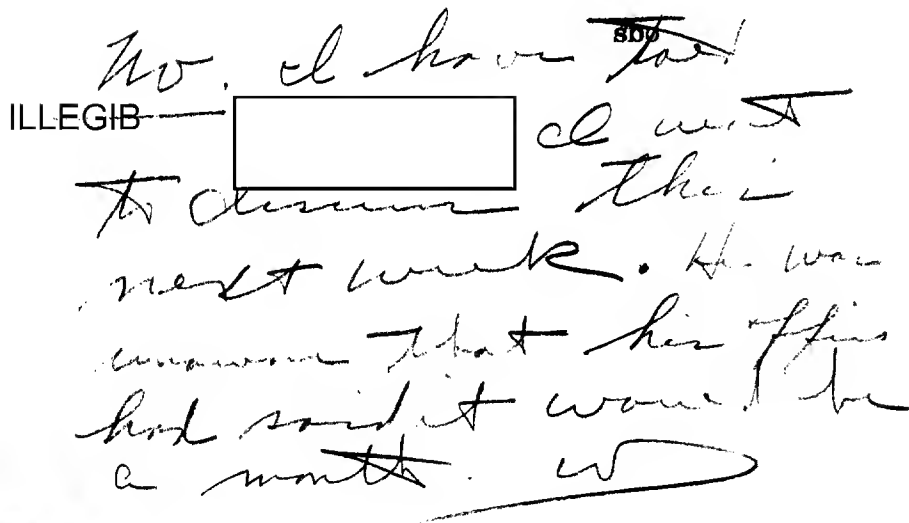 sbo
No. I have told
ILLEGIB
I want
to discuss this
next week. He was
unaware that his office
had said it would be
a month. W